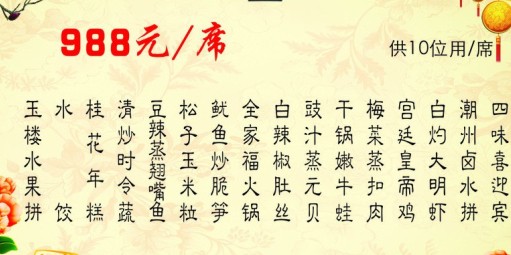 988元/席
供10位用/席
四味喜迎宾
潮州卤水拼
白灼大明虾
宫廷皇帝鸡
梅菜蒸扣肉
干锅嫩牛蛙
豉汁蒸元贝
白辣椒肚丝
全家福火锅
鱿鱼炒脆笋
松子玉米粒
豆辣蒸翘嘴鱼
清炒时令蔬
桂花年糕
水饺
玉楼水果拼